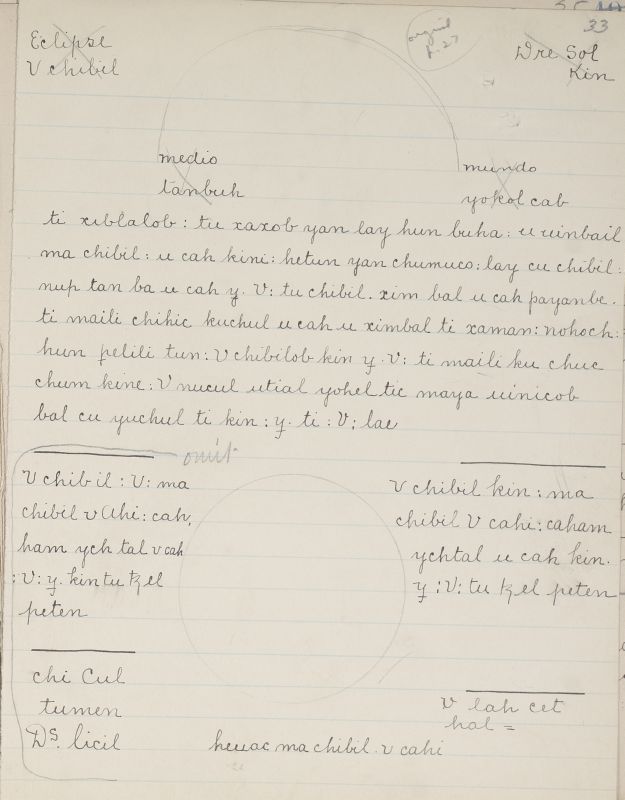 33
original
p. 27
Eclipse
V chibil
Dre Sol
Kin
medio
tanbuh
mundo
yokol cab
ti xiblalob : tu xaxob yan lay hun buha : u uinbail
ma chibil : u cah kini : hetun yan chumuco : lay cu chibil :
nup tan ba u cah y. V : tu chibil . xim bal u cah payanbe .
ti maili chihic kuchul u cah u ximbal ti xaman : nohoch :
hun pelili tun : V chibilob kin y . V : ti maili ku chuc
chum kine : V nucul utial yohel tic maya uinicob
bal cu yuchul ti kin : y . ti : V ; lae
omit
V chibil : V : ma
chibil v Uhi : cah,
ham ych tal v cah
: V : y . kin tu ꜩ el
peten
V chibil kin : ma
chibil V cahi : caham
ychtal u cah kin .
y : V : tu ꜩ el peten
chi Cul
tumen
Ds. licil
V lah cet
hal =
heuac ma chibil . v cahi